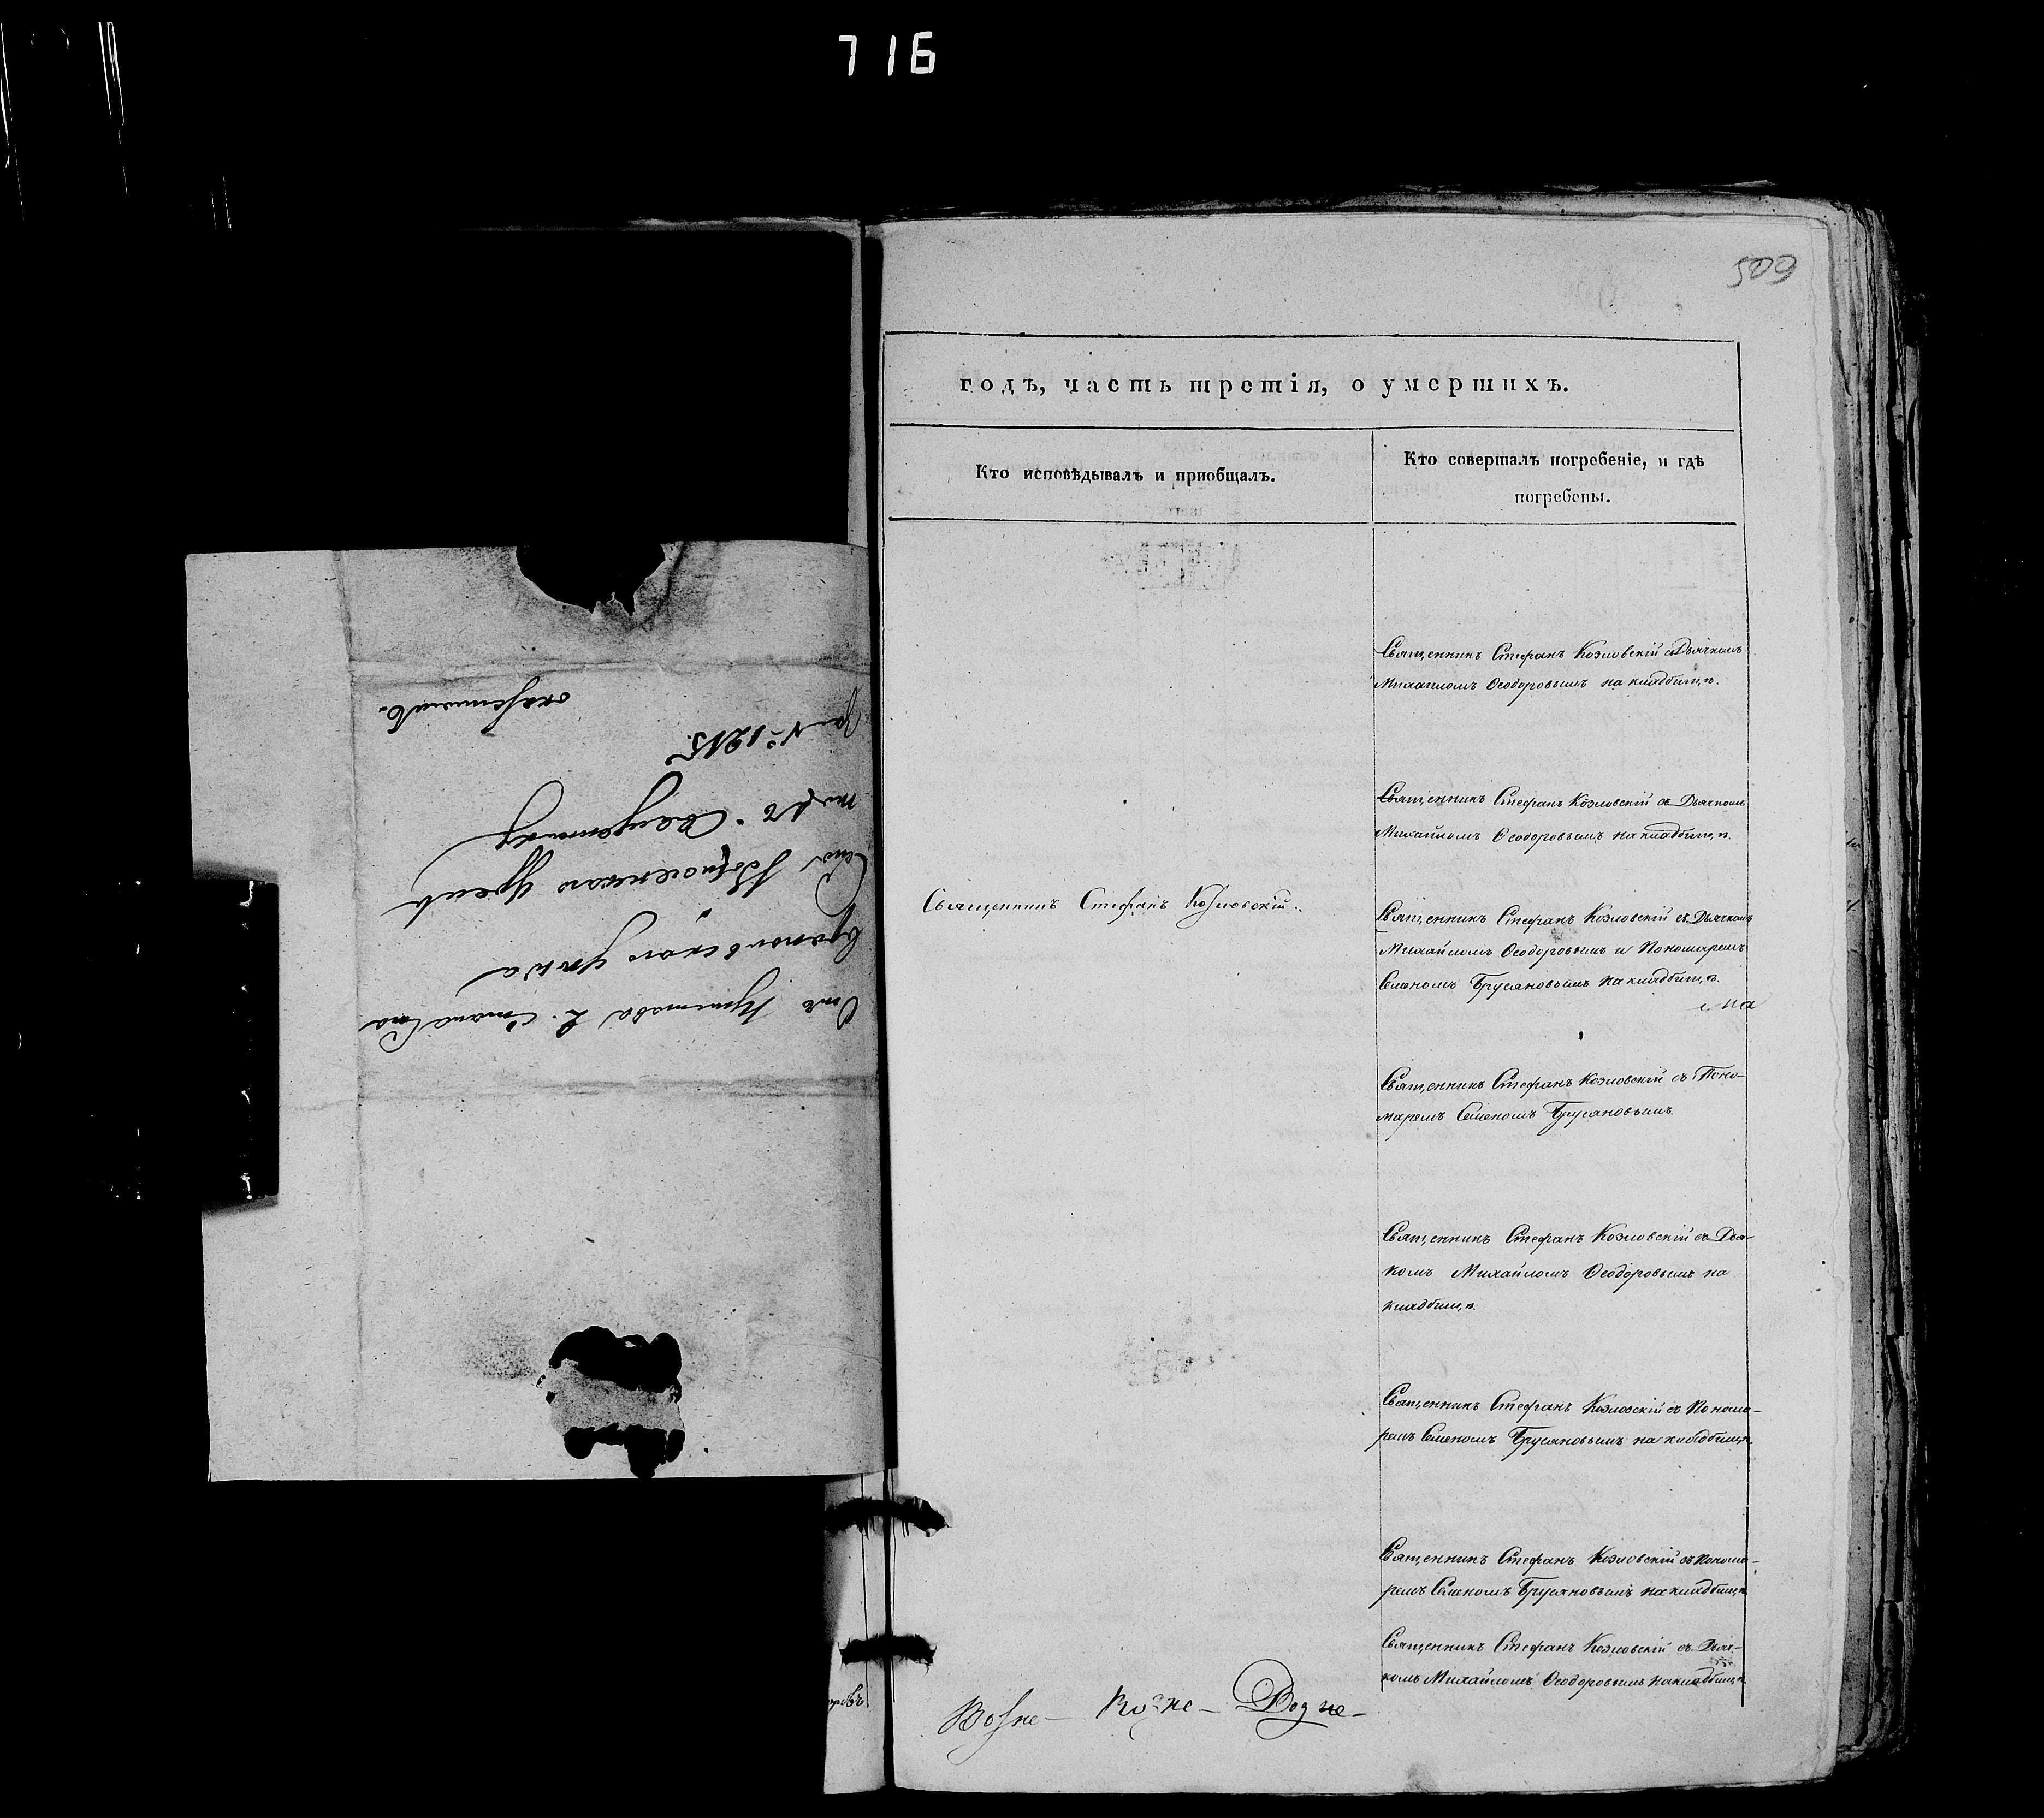 716
509
годъ, часть третія, о умершихъ.
Кто исповѣдывалъ и приобщалъ.
Кто совершалъ погребеніе, и гдѣ
погребены.
Священникъ Стефанъ Козловскій съ Дьячкомъ
Михайломъ Ѳеодоровымъ на кладбищѣ.
Священникъ Стефанъ Козловскій съ Дьячкомъ
Михайломъ Ѳеодоровымъ на кладбищѣ.
Священникъ Стефанъ Козловскій.
Священникъ Стефанъ Козловскій съ Дьячкомъ
Михайломъ Ѳеодоровымъ и Пономаремъ
Семеномъ Брусяновымъ на кладбищѣ.
на
Священникъ Стефанъ Козловскій съ Поно-
маремъ Семеномъ Брусяновымъ
Священникъ Стефанъ Козловскій съ Дья-
комъ Михайломъ Ѳеодоровымъ на
кладбищѣ.
Священникъ Стефанъ Козловскій съ Понома-
ремъ Семеномъ Брусяновымъ на кладбищѣ.
Священникъ Стефанъ Козловскій съ Понома-
ремъ Семеномъ Брусяновымъ на кладбищѣ
Священникъ Стефанъ Козловскій съ Дьяч-
комъ Михайломъ Ѳеодоровымъ на кладбищѣ
Возне- Возне-
Отъ Пристава 2. Стана
уѣзда
Села
Священнику
№ 1215.